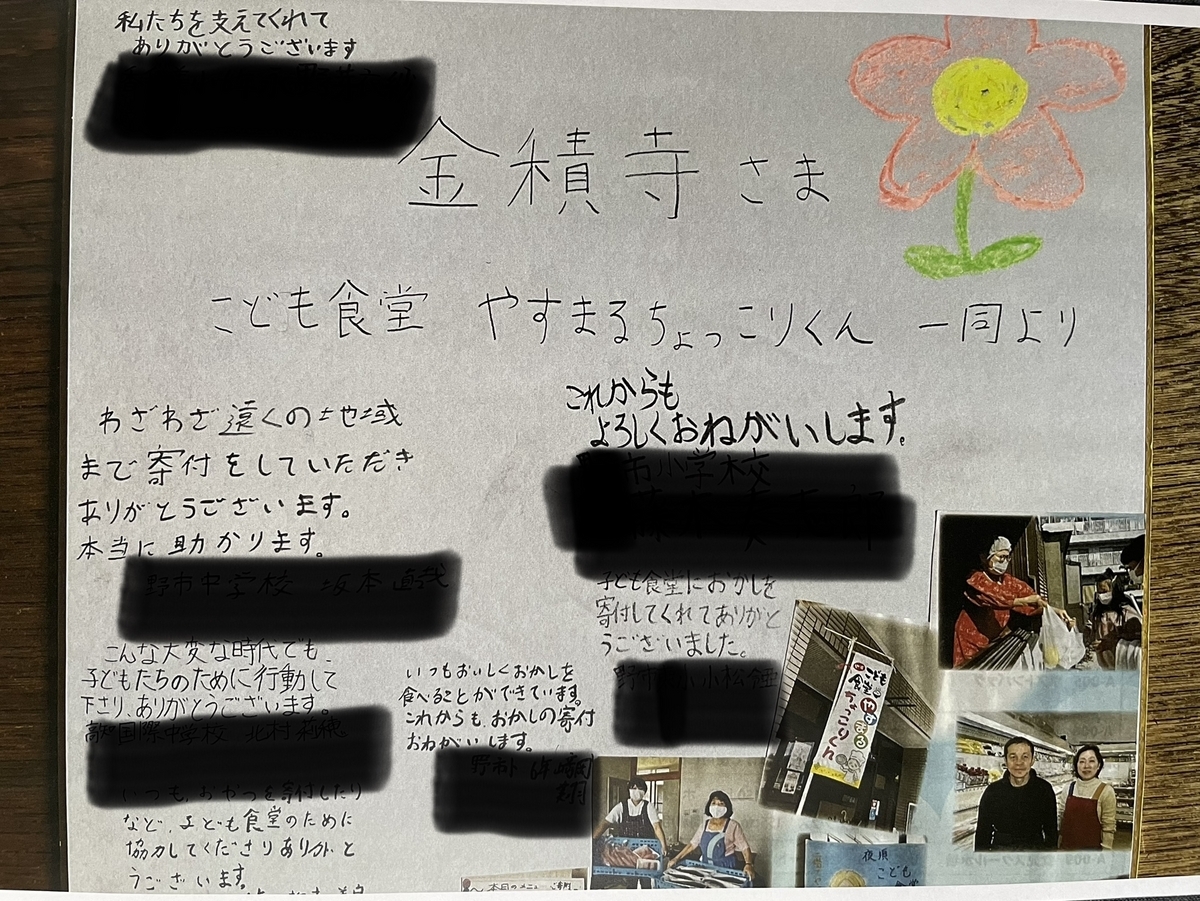 私たちを支えてくれて
ありがとうございます
金積寺さま
こども食堂 やすまるちょっこりくん 一同より
わざわざ遠くの地域
まで寄付をしていただき
ありがとうございます。
本当に助かります。
こんな大変な時代でも、
子どもたちのために行動して
下さり、ありがとうございます。
いつも、おやつを寄付したり
など、子ども食堂のために
協力してくださりありがと
うございます。
いつもおいしくおかしを
食べることができています。
これからも、おかしの寄付
おねがいします。
これからも
よろしくおねがいします。
子ども食堂におかしを
寄付してくれてありがと
うございました。
こども
食堂
やすまる
ちょっこりくん
夜須
こども